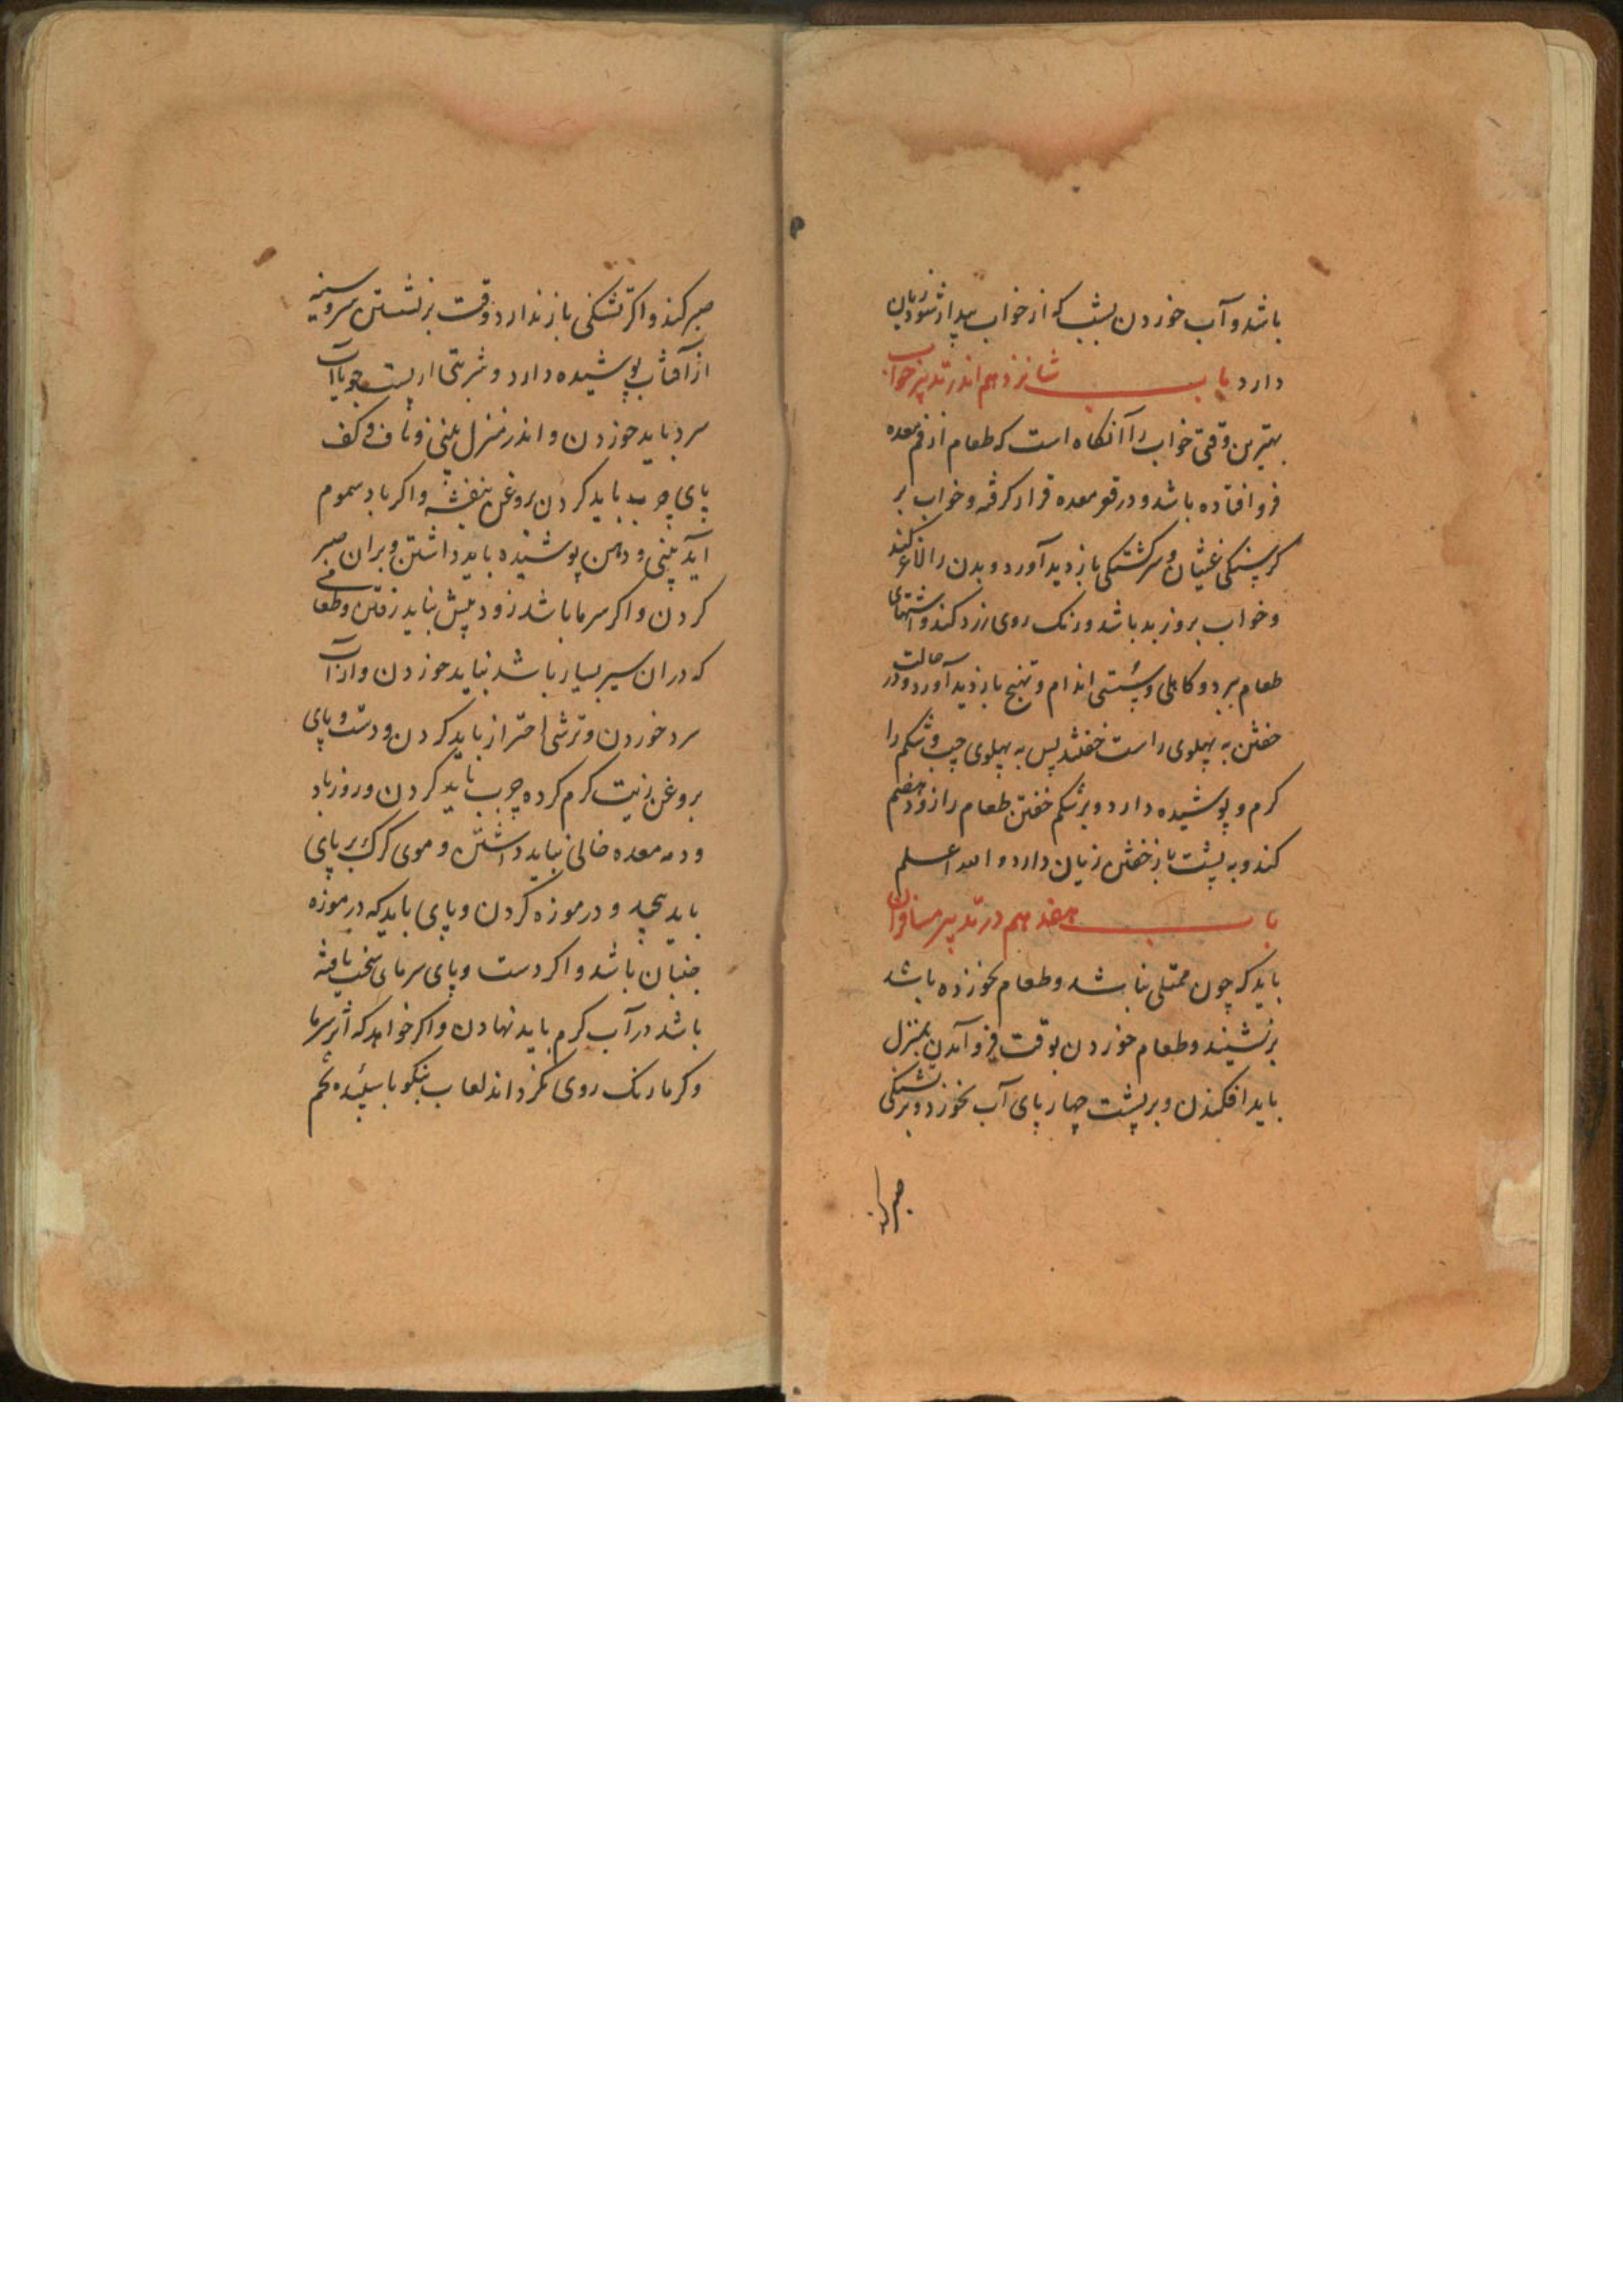 باشد و آب خوردن بشب که از خواب بیدار شود زیان
دارد باب شانزدهم اندر تدبیر خواب
بهترین وقتی خواب را آنکاه است که طعام از فم معده
فرو افتاده باشد و در قعر معده قرار کرفته و خواب بر
کرسنکی غثیان و سرکشتکی بازدید آورد و بدن را لاغر کند
و خواب بروز بد باشد و رنک روی زرد کند و اشتهای
طعام ببرد و کاهلی و سستی اندام و تهبج بازدید آورد و در حالت
خفتن به پهلوی راست خفتد پس به پهلوی چپ و شکم را
کرم و پوشیده دارد و بر شکم خفتن طعام را زود هضم
کند و به پشت باز خفتن زیان دارد و الله اعلم
باب هفدهم در تدبیر مسافران
باید که چون ممتلی نباشد و طعام نخورده باشد
برنشیند و طعام خوردن بوقت فرو آمدن بمنزل
باید افکندن و بر پشت چهار پای آب نخورد و بر تشنکی
صبر کند
صبر کند و اکر تشنکی باز ندارد وقت برنشستن سر و سینه
از آفتاب پوشیده دارد و شربتی از پست جو باآب
سرد باید خوردن و اندر منزل بینی و ناف و کف
پای چرب باید کردن بروغن بنفشه و اکر باد سموم
آید بینی و دهن پوشیده باید داشتن و بران صبر
کردن و اکر سرما باشد زود پیش نباید رفتن و طعامی
که دران سیر بسیار باشد نباید خوردن و از آب
سرد خوردن و ترشی احتراز باید کردن و دست و پای
بروغن زیت کرم کرده چرب باید کردن و روز باد
و دمه معده خالی نباید داشتن و موی کرک بر پای
باید پیچید و در موزه کردن و پای باید که در موزه
جنبان باشد و اکر دست و پای سرمای سخت یافته
باشد در آب کرم باید نهادن و اکر خواهد که اثر سرما
و کرما رنک روی نکرداند لعاب بنکو با سپیده تخم